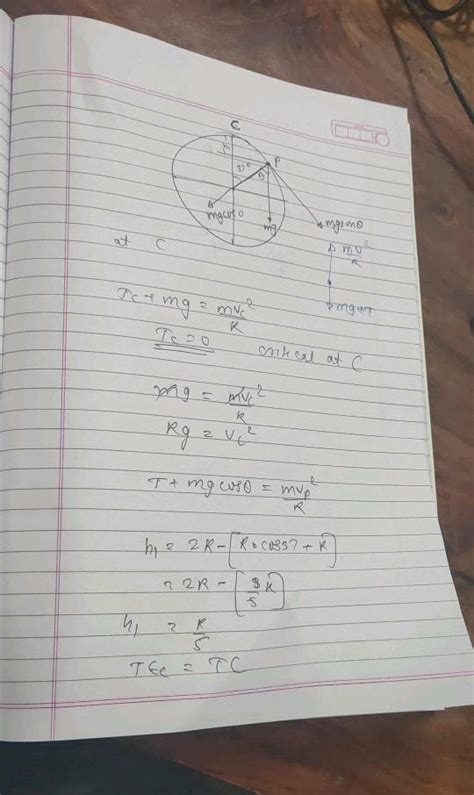 C
h
37°
P
θ
mgcosθ
mg
mgsinθ
at C
mv²/R
mg+T
Tc + mg = mvc²/R
Tc = 0 critical at C
mg = mvc²/R
Rg = vc²
T + mgcosθ = mvp²/R
h₁ = 2R - [R cos37 + R]
= 2R - [9/5 R]
h₁ = R/5
TEc = TC